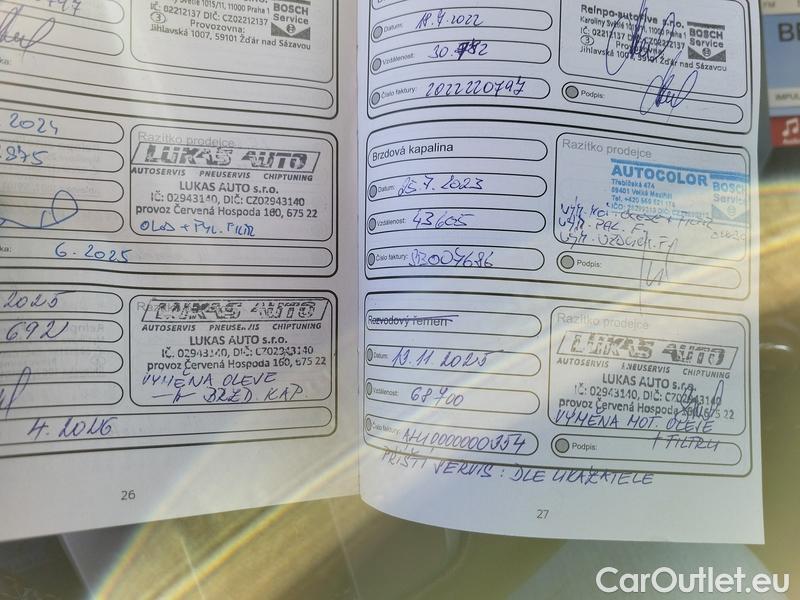 IČ: 02212137 DIČ: CZ02212137
Provozovna:
Jihlavská 1007, 59101 Žďár nad Sázavou
BOSCH
Service
2024
875
Razítko prodejce
LUKAS AUTO
AUTOSERVIS PNEUSERVIS CHIPTUNING
LUKAS AUTO s.r.o.
IČ: 02943140, DIČ: CZ02943140
provoz Červená Hospoda 160, 675 22
OLEJ + PYL. FILTR
6.2025
2025
692
LUKAS AUTO
AUTOSERVIS PNEUSERVIS CHIPTUNING
LUKAS AUTO s.r.o.
IČ: 02943140, DIČ: CZ02943140
provoz Červená Hospoda 160, 675 22
VÝMĚNA OLEJE
BRZD. KAP.
4.2026
26
Datum: 18.7.2022
Vzdálenost:
Číslo faktury: 2022220797
Karolíny Světlé 1015/11, 11000 Praha 1
IČ: 02212137 DIČ: CZ02212137
Provozovna:
Jihlavská 1007, 59101 Žďár nad Sázavou
BOSCH
Service
Podpis:
Brzdová kapalina
Datum: 25.7.2023
Vzdálenost: 43605
Číslo faktury:
Razítko prodejce
AUTOCOLOR
Třebíčská 474
59401 Velké Meziříčí
BOSCH
Service
VÝM. PAL. F.
VÝM. VZDUCH. F.
Podpis:
Rozvodový řemen
Datum: 13.11.2025
Vzdálenost: 68700
Číslo faktury:
Razítko prodejce
LUKAS AUTO
AUTOSERVIS PNEUSERVIS CHIPTUNING
LUKAS AUTO s.r.o.
IČ: 02943140, DIČ: CZ02943140
provoz Červená Hospoda 160, 675 22
VÝMĚNA MOT. OLEJE
+ FILTRU
Podpis:
PŘÍŠTÍ SERVIS: DLE UKAZATELE
27
CarOutlet.eu